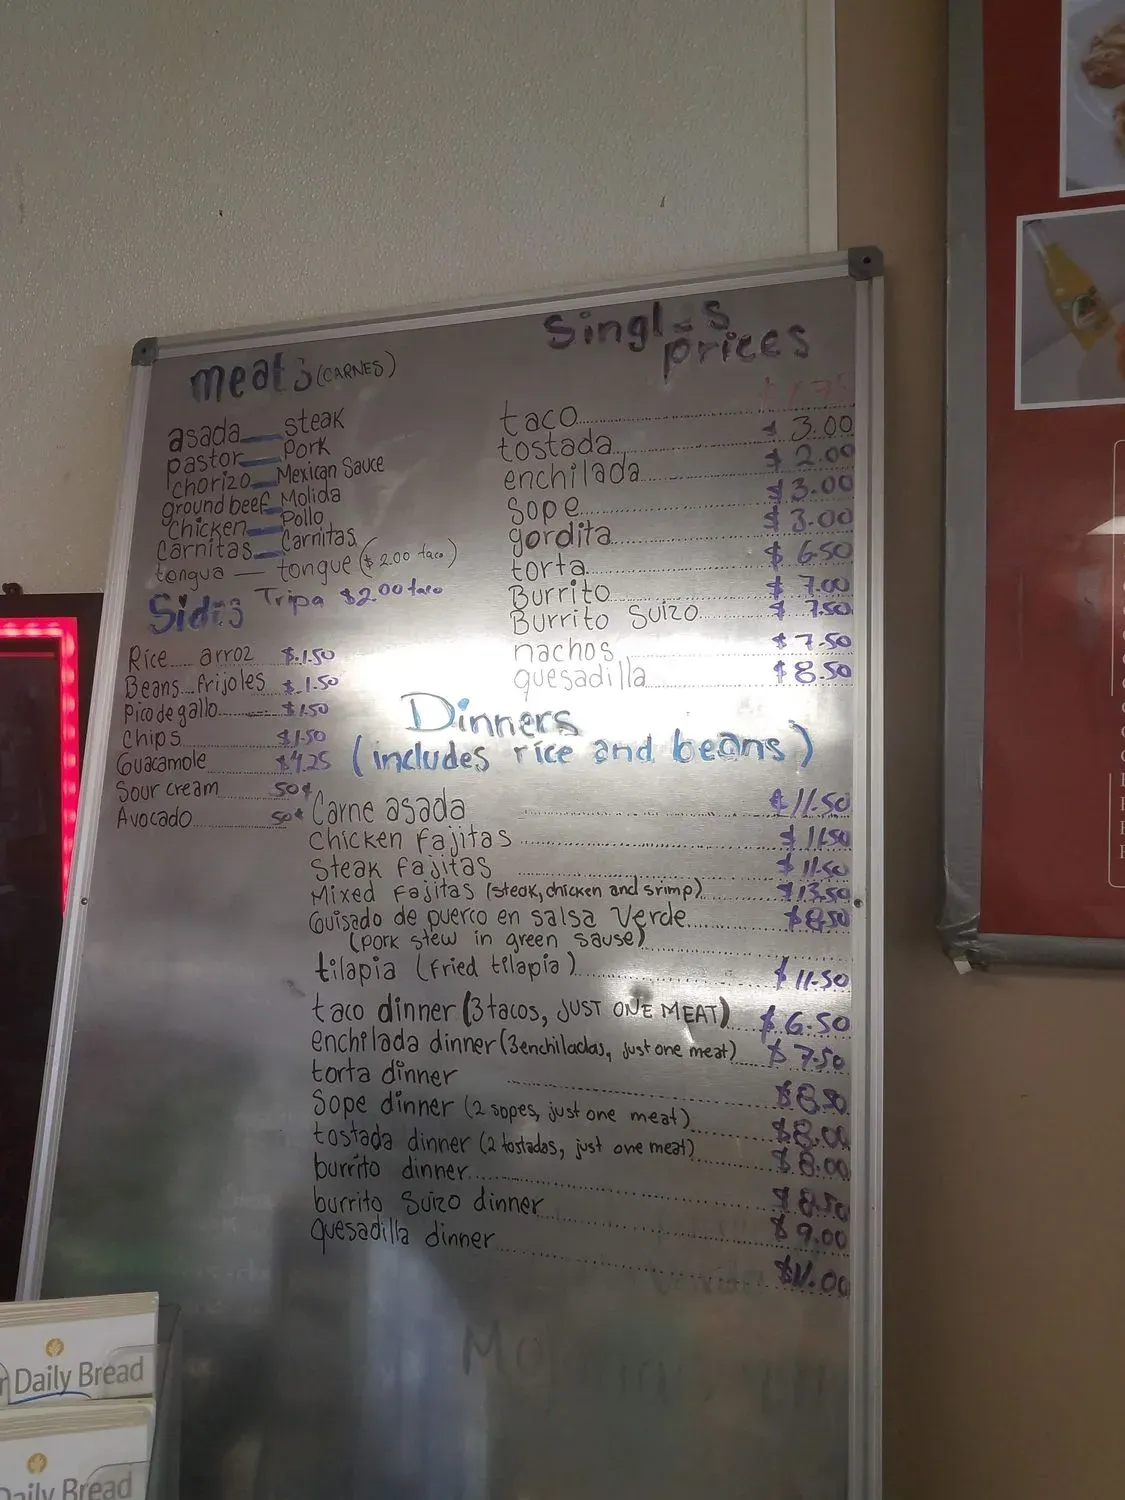 meats (CARNES)
asada steak
pastor Pork
chorizo Mexican Sauce
ground beef Molida
chicken Pollo
Carnitas Carnitas
tongua — tongue ($2.00 taco)
Tripa $2.00 taco
Sides
Rice.... arroz $.1.50
Beans...frijoles $.1.50
Pico de gallo........ $1.50
chips $1.50
Guacamole $4.25
Sour cream........ 50¢
Avocado........ 50¢
Singles
prices
taco........ $1.75
tostada........ $3.00
enchilada........ $2.00
Sope........ $3.00
gordita........ $3.00
torta........ $6.50
Burrito........ $7.00
Burrito Suizo........ $7.50
nachos........ $7.50
quesadilla........ $8.50
Dinners
(includes rice and beans)
Carne asada........ $11.50
Chicken Fajitas........ $11.50
Steak Fajitas........ $11.50
Mixed Fajitas (steak, chicken and srimp)... $13.50
Guisado de puerco en salsa Verde... $8.50
(pork stew in green sause)........
tilapia (Fried tilapia)........ $11.50
taco dinner (3 tacos, JUST ONE MEAT) $6.50
enchilada dinner (3 enchiladas, just one meat) $7.50
torta dinner........ $8.50
Sope dinner (2 sopes, just one meat)........ $8.00
tostada dinner (2 tostadas, just one meat)........ $8.00
burrito dinner........ $8.50
burrito Suizo dinner........ $9.00
quesadilla dinner........ $11.00
Daily Bread
Daily Bread